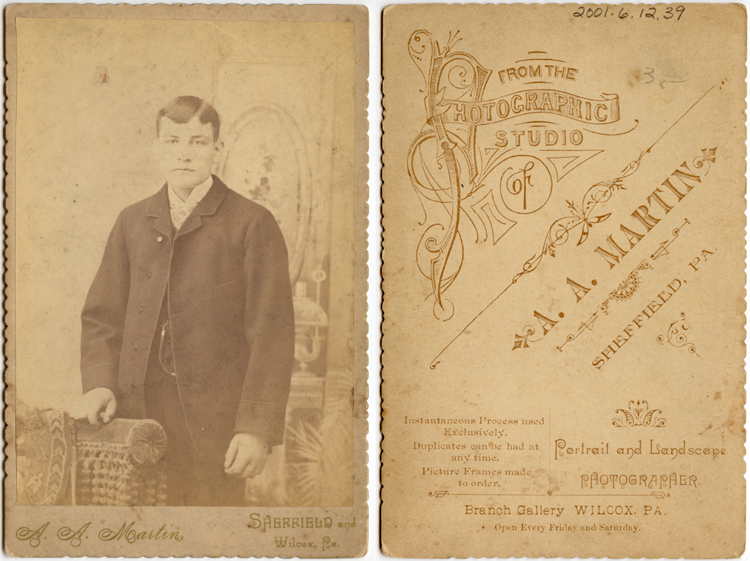 A. A. Martin,
SHEFFIELD and
Wilcox, Pa.
2001.6.12.39
3-
FROM THE
PHOTOGRAPHIC
STUDIO
of
A. A. MARTIN
SHEFFIELD, PA.
Instantaneous Process used
Exclusively.
Duplicates can be had at
any time.
Picture Frames made
to order.
Portrait and Landscape
PHOTOGRAPHER.
Branch Gallery WILCOX. PA.
Open Every Friday and Saturday.